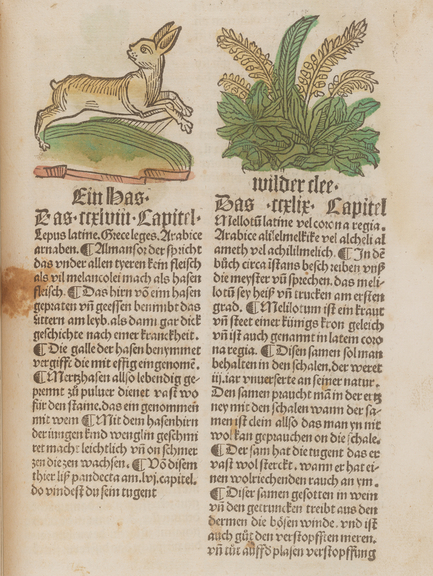 Ein Has.
Das .ccxlviii. Capitel.
Lepus latine. Grece leges. Arabice
arnaben. ¶ Almansor der spricht
das vnder allen tyeren kein fleisch
als vil melancolei mach als hasen
fleisch. ¶ Das hirn võ eim hasen
gepraten vñ geessen benimbt das
zittern am leyb. als dann gar dick
geschichte nach einer kranckheit.
¶ Die galle der hasen benymmet
vergifft die mit essig eingenomẽ.
¶ Mertzhasen allso lebendig ge-
prennt zů puluer dienet vast wo
für den staine. das ein genommen
mit wein ¶ Mit dem hasenhirn
der iungen kind wenglin geschmi
ret macht leichtlich vñ on schmer
zen die zen wachsen. ¶ Võ disem
thier liß pandecta am .lvj. capitel.
do vindest du sein tugent
wilder clee.
Das .ccxlix. Capitel
Mellotũ latine vel corona regia.
Arabice alielmelkike vel alcheli al
ameth vel achililmelich. ¶ In dẽ
bůch circa istans beschreiben vnß
die meyster vñ sprechen. das meli-
lotũ sey heiß vñ trucken am ersten
grad. ¶ Melilotum ist ein kraut
vñ steet einer künigs kron geleich
vñ ist auch genannt in latem coro
na regia. ¶ Disen samen sol man
behalten in den schalen. der weret
iij. iar vnuerserte an seiner natur.
Den samen praucht mã in der ertz
ney mit den schalen wann der sa-
men ist clein allso das man yn nit
wol kan geprauchen on die schale.
¶ Der sam hat die tugent das er
vast wol sterckt. wann er hat ei-
nen wolriechenden rauch an ym.
¶ Diser samen gesotten in wein
vñ den getruncken treibt aus den
dermen die bösen winde. vnd ist
auch gůt den verstopfften nieren.
vñ tůt auff d plasen verstopffung